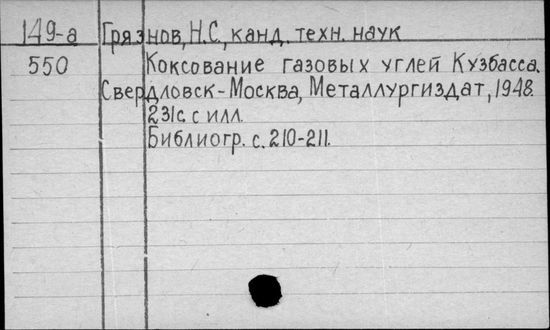 149-а Грязнов, Н.С., канд. техн. наук
550 Коксование газовых углей Кузбасса.
Свердловск-Москва, Металлургиздат, 1948
231с. с илл.
Библиогр. с. 210-211.